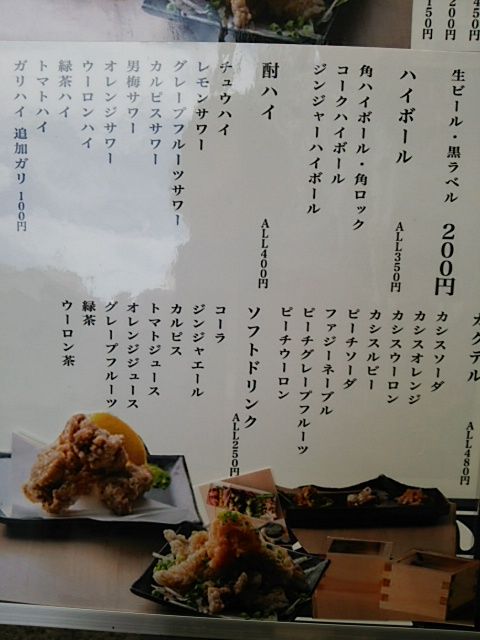 450円
200円
150円
生ビール・黒ラベル 200円
ハイボール ALL350円
角ハイボール・角ロック
コークハイボール
ジンジャーハイボール
酎ハイ ALL400円
チュウハイ
レモンサワー
グレープフルーツサワー
カルピスサワー
男梅サワー
オレンジサワー
ウーロンハイ
緑茶ハイ
トマトハイ
ガリハイ 追加ガリ 100円
カクテル ALL480円
カシスソーダ
カシスオレンジ
カシスウーロン
カシスルビー
ピーチソーダ
ファジーネーブル
ピーチグレープフルーツ
ピーチウーロン
ソフトドリンク ALL250円
コーラ
ジンジャエール
カルピス
トマトジュース
オレンジジュース
グレープフルーツ
緑茶
ウーロン茶